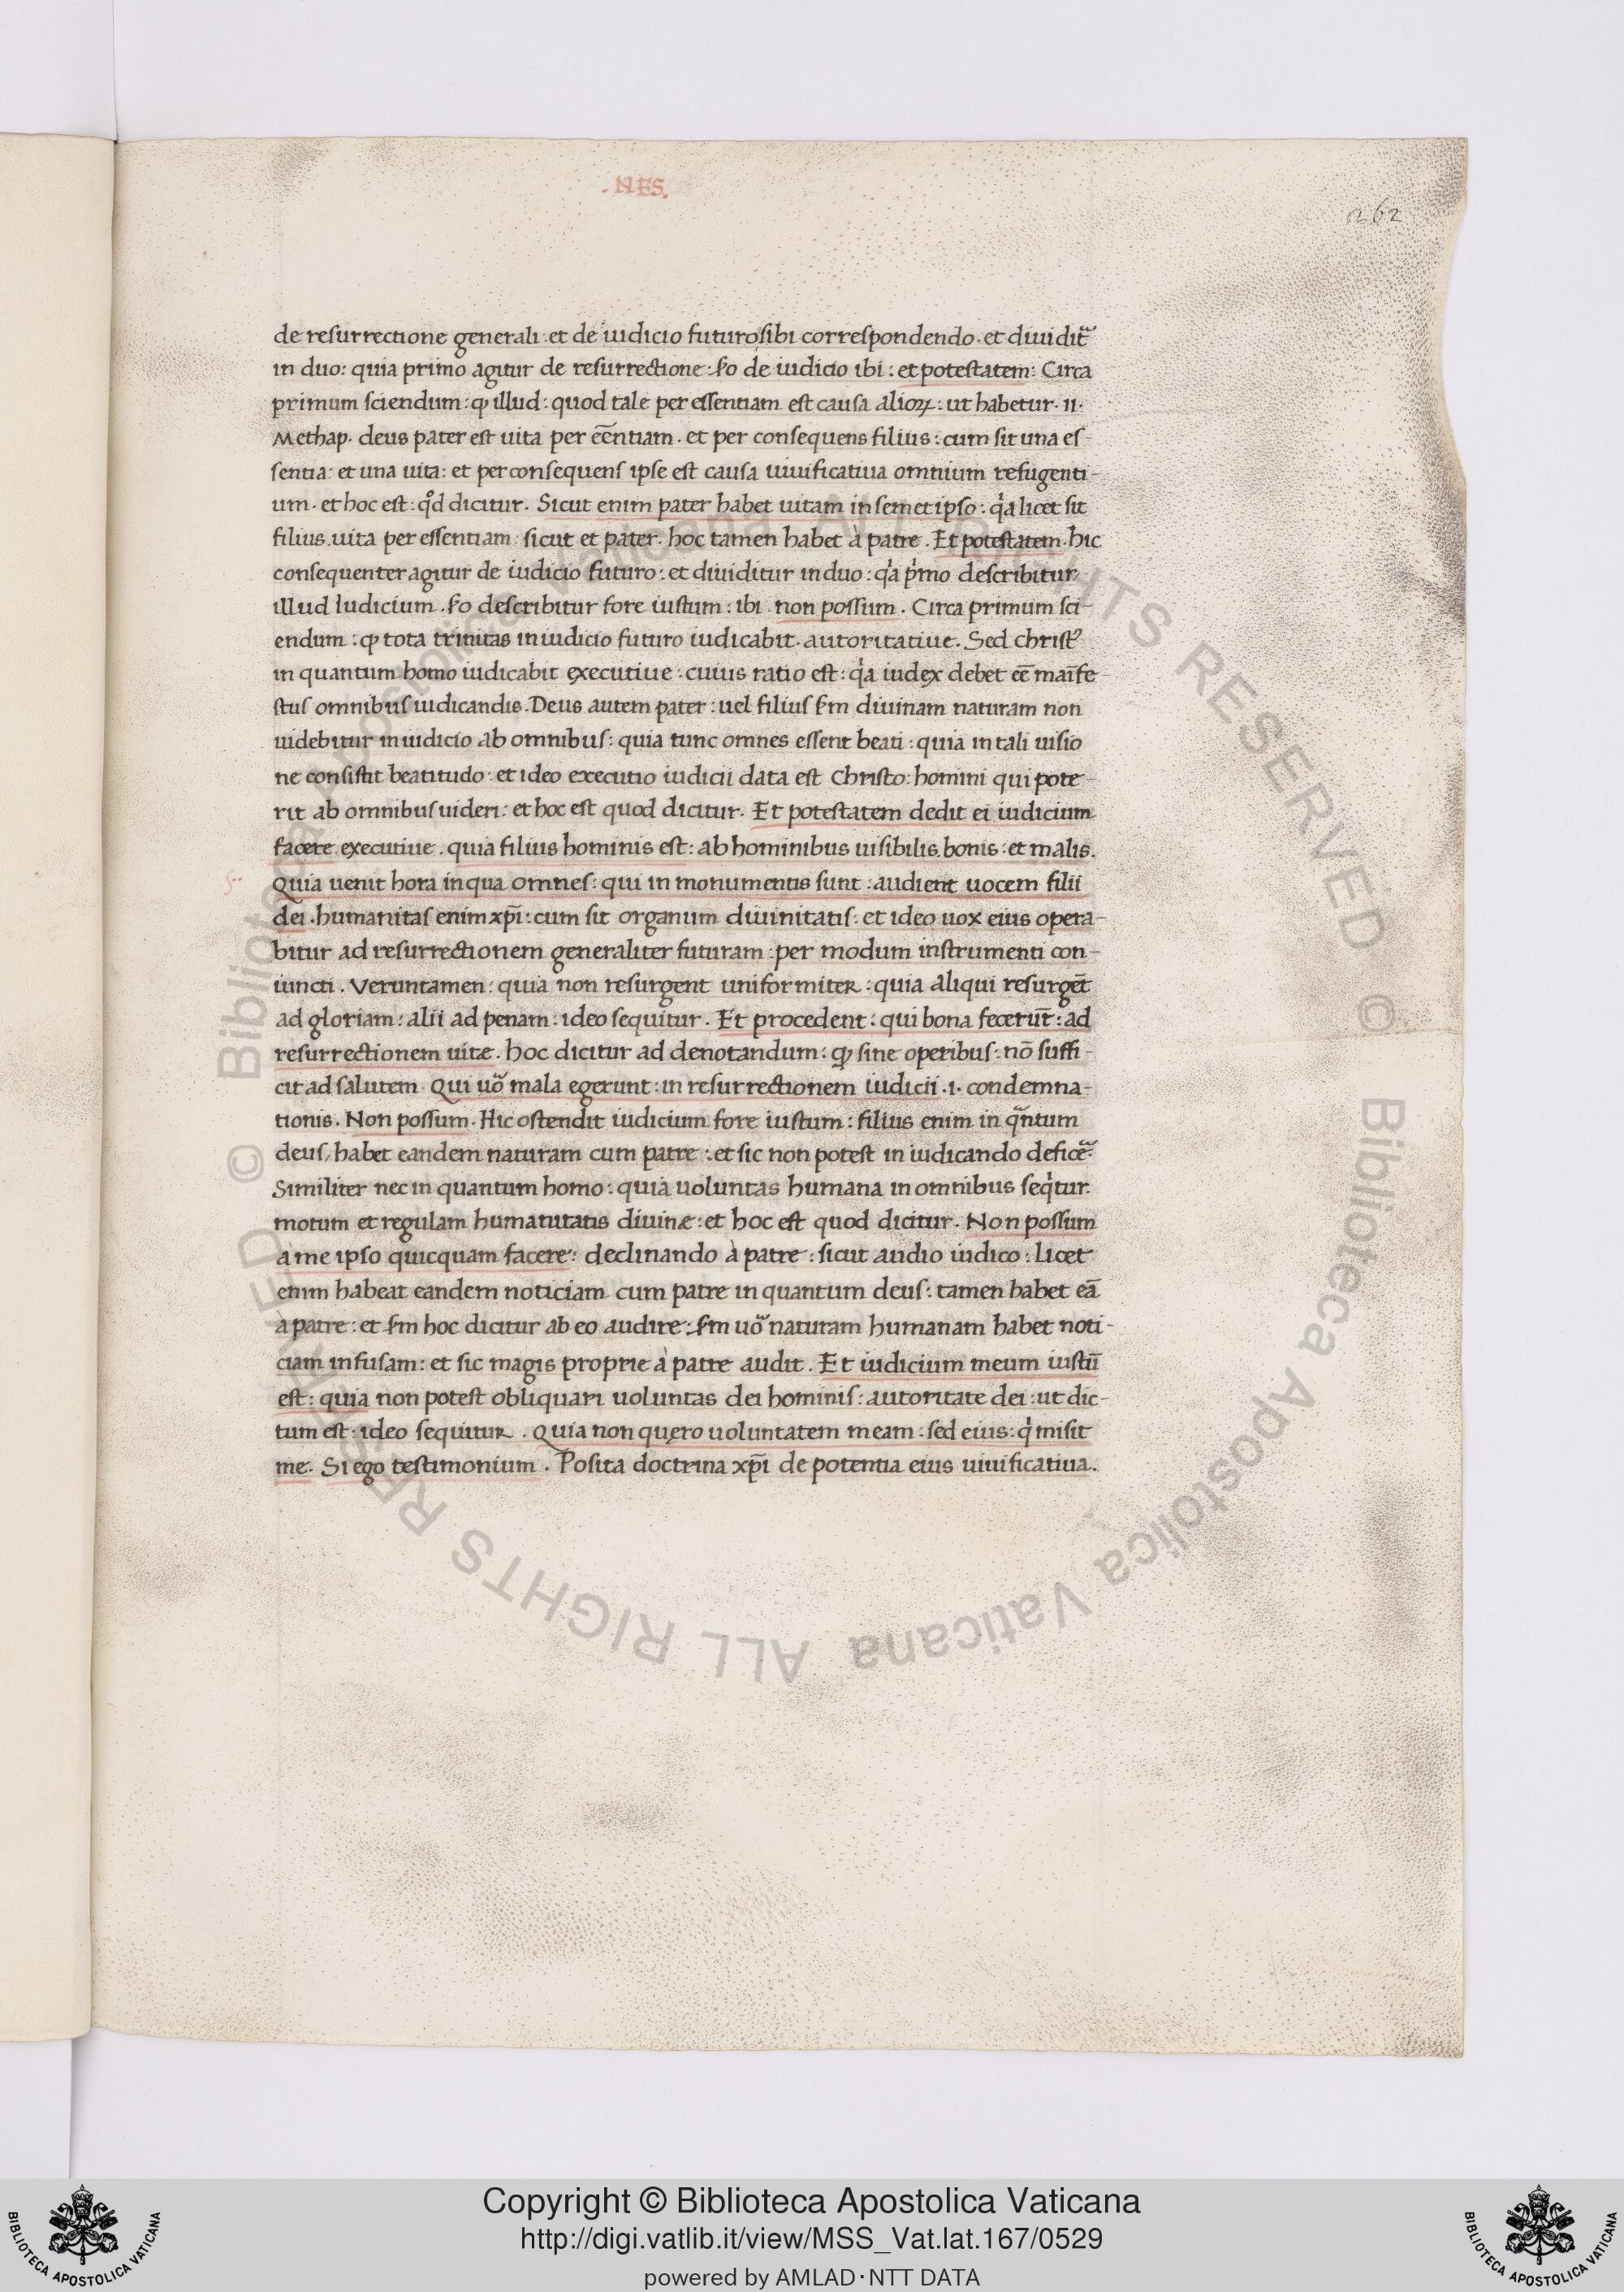 .NES.
262
de resurrectione generali: et de iudicio futuro sibi correspondendo. et diuidit᷑
in duo: quia primo agitur de resurrectione: so de iudicio ibi: et potestatem: Circa
primum sciendum: ꝙ illud: quod tale per essentiam est causa alioꝝ: ut habetur. II.
Methap. deus pater est uita per eēntiam. et per consequens filius: cum sit una es-
sentia: et una uita: et per consequens ipse est causa uiuificatiua omnium resugenti-
um. et hoc est: qͦd dicitur. Sicut enim pater habet uitam in semet ipso: qͥa licet sit
filius uita per essentiam: sicut et pater. hoc tamen habet à patre. Et potestatem. hic
consequenter agitur de iudicio futuro: et diuiditur in duo: qͥa pͥmo describitur
illud Iudicium. so describitur fore iustum: ibi. non possum. Circa primum sci-
endum: ꝙ tota trinitas in iudicio futuro iudicabit. autoritatiue. Sed christꝰ
in quantum homo iudicabit executiue: cuius ratio est: qͥa iudęx debet eē maīfe-
stus omnibus iudicandis. Deus autem pater: uel filius sm diuinam naturam non
uidebitur in iudicio ab omnibus: quia tunc omnes essent beati: quia in tali uisio
ne consistit beatitudo: et ideo executio iudicii data est Christo: homini qui pote-
rit ab omnibus uideri: et hoc est quod dicitur. Et potestatem dedit ei iudicium
facere executiue. quia filius hominis est: ab hominibus uisibilis bonis: et malis.
Quia uenit hora in qua omnes: qui in monumentis sunt: audient uocem filii
dei. humanitas enim xp̄i: cum sit organum diuinitatis: et ideo uox eius opera-
bitur ad resurrectionem generaliter futuram: per modum instrumenti con-
iuncti. Veruntamen: quia non resurgent uniformiter: quia aliqui resurgēt
ad gloriam: alii ad penam: ideo sequitur. Et procedent: qui bona fecerūt: ad
resurrectionem uitæ. hoc dicitur ad denotandum: ꝙ sine operibus: nō suffi-
cit ad salutem. Qui uo᷑ mala egerunt: in resurrectionem iudicii .i. condemna-
tionis. Non possum. Hic ostendit iudicium fore iustum: filius enim in qᷓntum
deus, habet eandem naturam cum patre: et sic non potest in iudicando defice᷑.
Similiter nec in quantum homo: quia uoluntas humana in omnibus seqͥtur
motum et regulam humatutatis diuinæ: et hoc est quod dicitur. Non possum
à me ipso quicquam facere: declinando à patre: sicut audio iudico: licet
enim habeat eandem noticiam cum patre in quantum deus: tamen habet eā
à patre: et sm hoc dicitur ab eo audire: sm uo᷑ naturam humanam habet noti-
ciam infusam: et sic magis proprie à patre audit. Et iudicium meum iustū
est: quia non potest obliquari uoluntas dei hominis: autoritate dei: ut dic-
tum est: ideo sequitur. Quia non quęro uoluntatem meam: sed eius: qͥ misit
me. Si ego testimonium. Posita doctrina xp̄i de potentia eius uiuificatiua.
© Biblioteca Apostolica Vaticana ALL RIGHTS RESERVED © Biblioteca Apostolica Vaticana ALL RIGHTS RESERVED
Copyright © Biblioteca Apostolica Vaticana
http://digi.vatlib.it/view/MSS_Vat.lat.167/0529
powered by AMLAD·NTT DATA
BIBLIOTECA APOSTOLICA VATICANA
BIBLIOTECA APOSTOLICA VATICANA